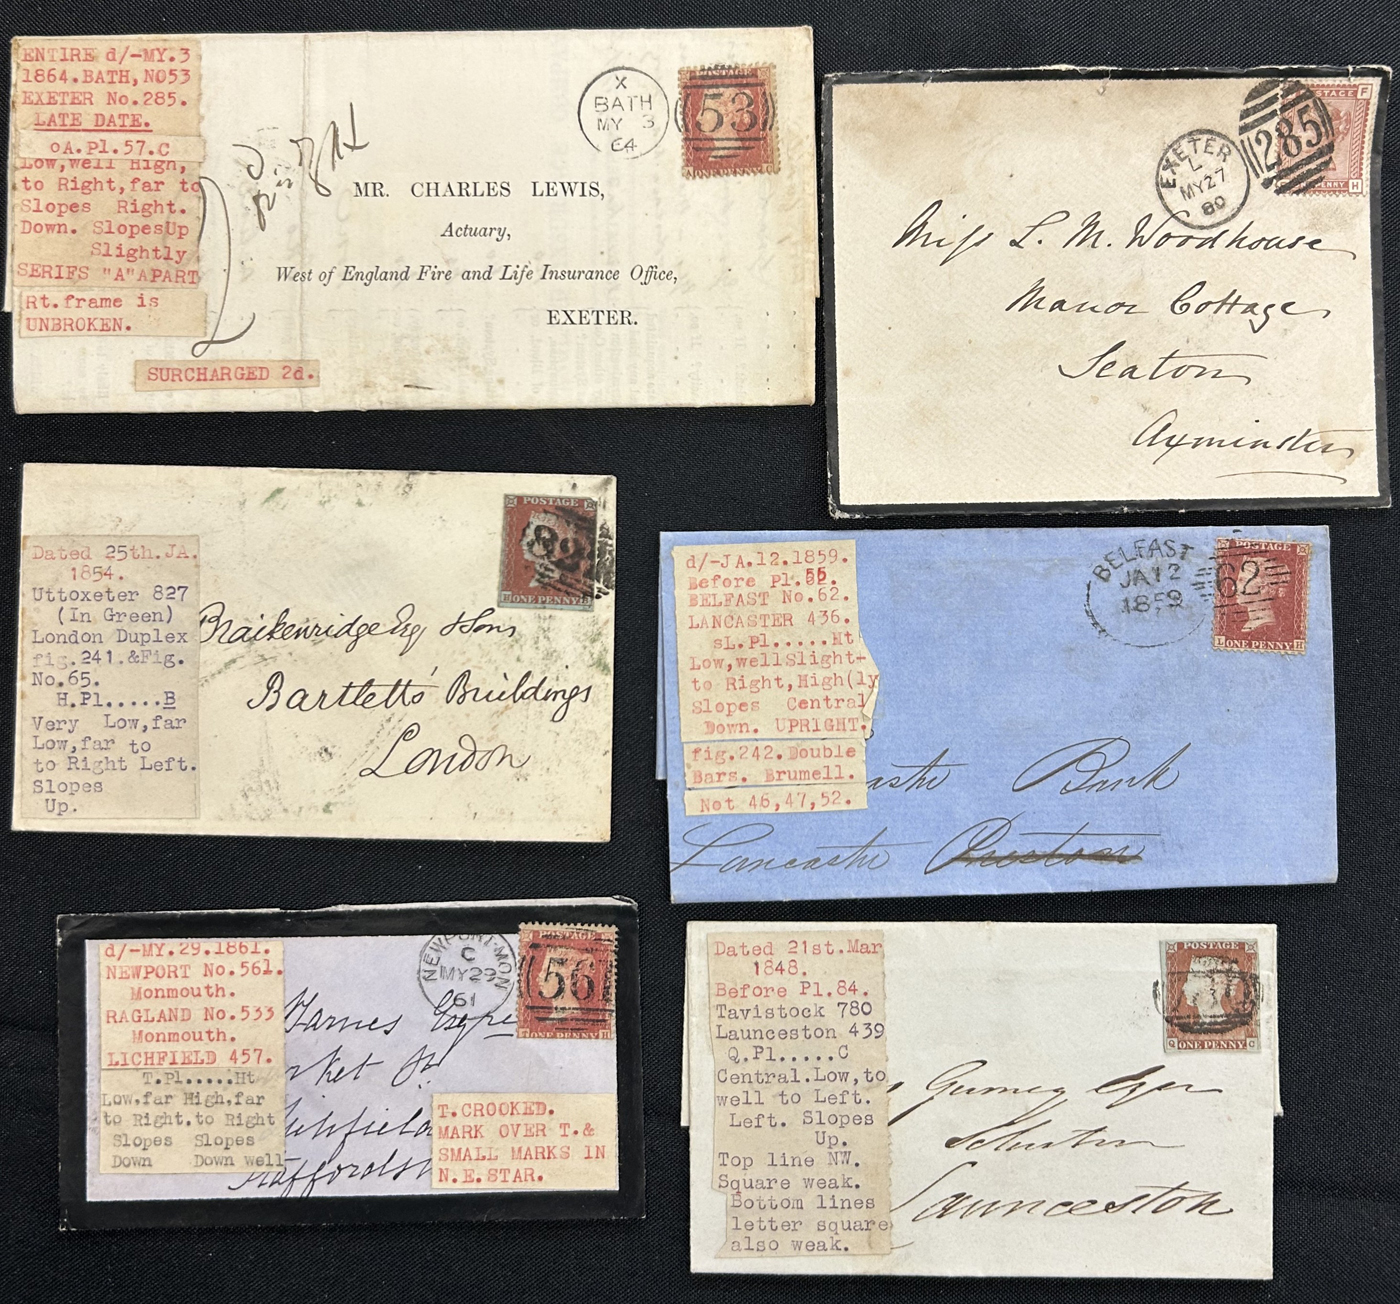 ENTIRE d/-MY.3
1864.BATH, NO53
EXETER No.285.
LATE DATE.
oA.Pl.57.C
Low,well High,
to Right,far to
Slopes Right.
Down. SlopesUp
Slightly
SERIFS "A"APART
Rt.frame is
UNBROKEN.
SURCHARGED 2d.
X
BATH
MY 3
64
POSTAGE
53
MR. CHARLES LEWIS,
Actuary,
West of England Fire and Life Insurance Office,
EXETER.
EXETER
L
MY27
80
285
STAGE F
PENNY H
Miss L. M. Woodhouse
Manor Cottage
Seaton
Axminster
Dated 25th.JA.
1854.
Uttoxeter 827
(In Green)
London Duplex
fig.241.&Fig.
No.65.
H.Pl.....B
Very Low,far
Low,far to
to Right Left.
Slopes
Up.
POSTAGE
82
H ONE PENNY B
Braikenridge Esq & Sons
Bartletts' Buildings
London
d/-JA.12.1859.
Before Pl.55.
BELFAST No.62.
LANCASTER 436.
sL.Pl.....Ht
Low,wellSlight-
to Right,High(ly
Slopes Central
Down. UPRIGHT.
fig.242.Double
Bars. Brumell.
Not 46,47,52.
BELFAST
JA 12
1859
POSTAGE
62
L ONE PENNY H
Bank
Lancaster Preston
d/-MY.29.1861.
NEWPORT No.561.
Monmouth.
RAGLAND No.533
Monmouth.
LICHFIELD 457.
T.Pl.....Ht
Low,far High,far
to Right.to Right
Slopes Slopes
Down Down well
NEWPORT-MON
C
MY29
61
POSTAGE
56
T ONE PENNY H
T.CROOKED.
MARK OVER T.&
SMALL MARKS IN
N.E.STAR.
Dated 21st.Mar
1848.
Before Pl.84.
Tavistock 780
Launceston 439
Q.Pl.....C
Central.Low,to
well to Left.
Left. Slopes
Up.
Top line NW.
Square weak.
Bottom lines
letter square
also weak.
POSTAGE
Q ONE PENNY C
Gurney Esqr
Launceston